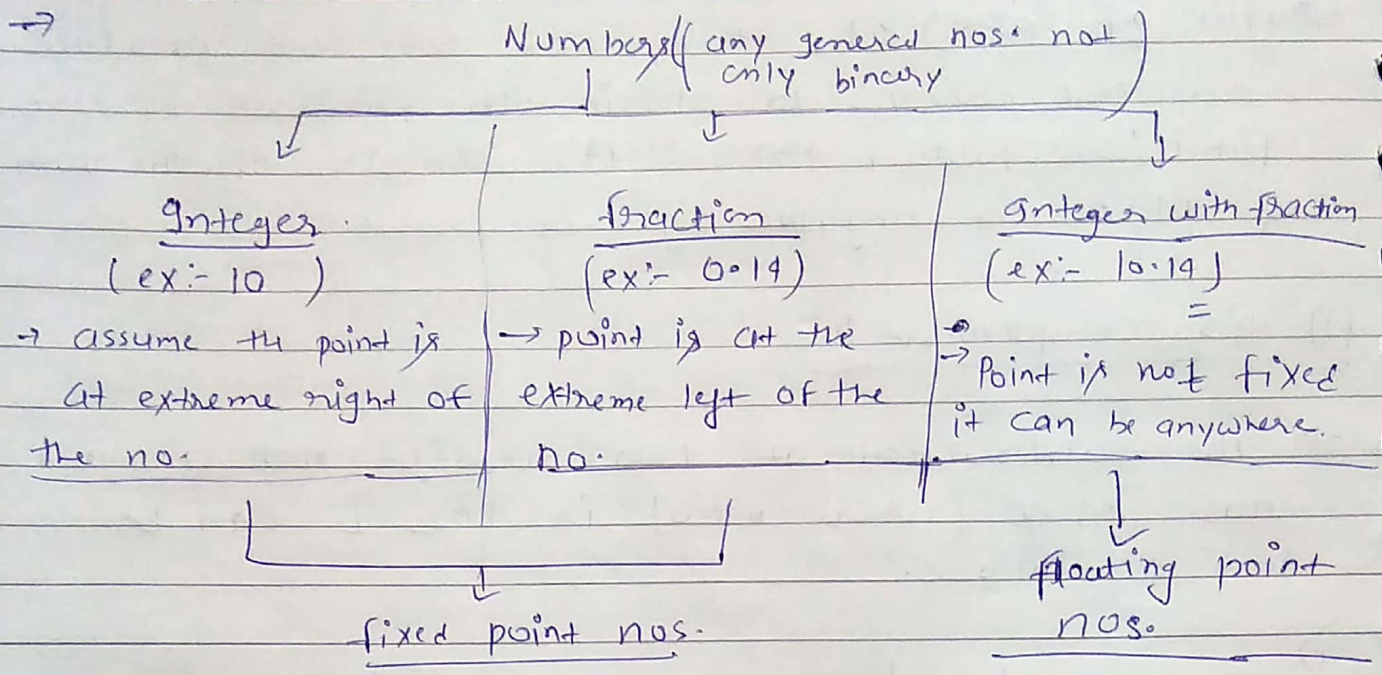 →
Numbers ( any general nos. not
only binary )
Integer
(ex:- 10 )
→ assume the point is
at extreme right of
the no.
fraction
(ex:- 0.14)
→ point is at the
extreme left of the
no.
Integer with fraction
(ex:- 10.14)
→ Point is not fixed
it can be anywhere.
fixed point nos.
floating point
nos.